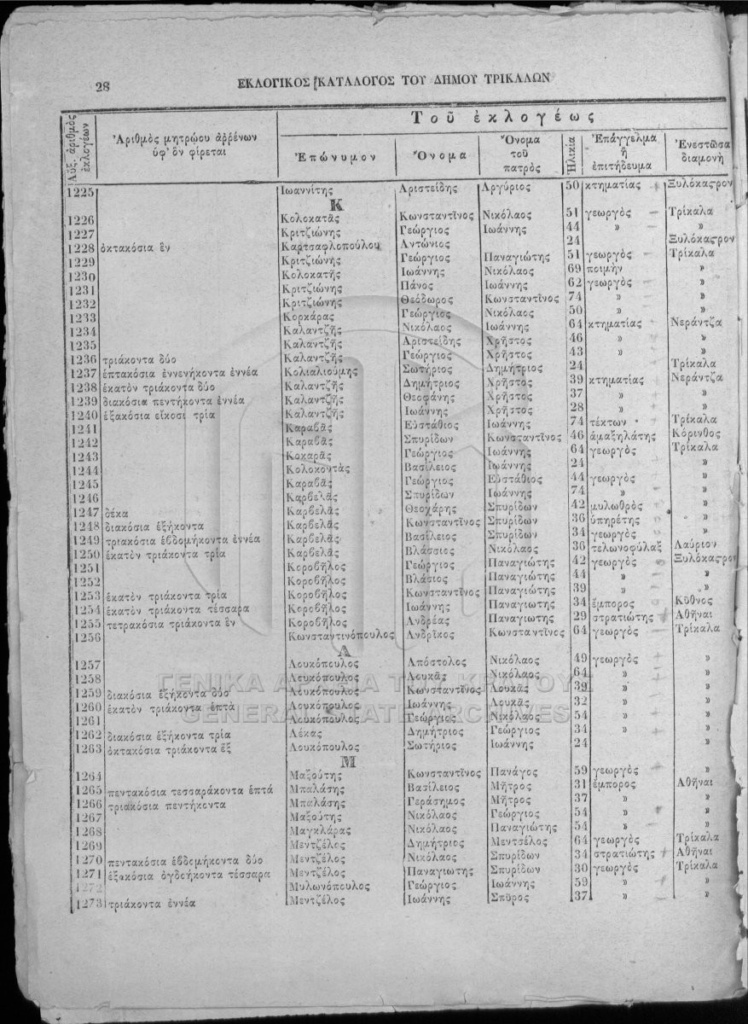 28
ΕΚΛΟΓΙΚΟΣ ΚΑΤΑΛΟΓΟΣ ΤΟΥ ΔΗΜΟΥ ΤΡΙΚΑΛΩΝ
Αὔξ. ἀριθμὸς ἐκλογέων
Ἀριθμὸς μητρώου ἀρρένων ὑφ' ὃν φέρεται
Τοῦ ἐκλογέως
Ἐπώνυμον
Ὄνομα
Ὄνομα τοῦ πατρὸς
Ἡλικία
Ἐπάγγελμα ἢ ἐπιτήδευμα
Ἐνεστῶσα διαμονὴ
1225 Ἰωαννίτης Ἀριστείδης Ἀργύριος 50 κτηματίας Ξυλόκασρον
Κ
1226 Κολοκατᾶς Κωνσταντῖνος Νικόλαος 51 γεωργὸς Τρίκαλα
1227 Κριτζιώνης Γεώργιος Ἰωάννης 44 » »
1228 ὀκτακόσια ἓν Καρτσαφλοπούλου Ἀντώνιος 24 Ξυλόκασρον
1229 Κριτζιώνης Γεώργιος Παναγιώτης 51 γεωργὸς Τρίκαλα
1230 Κολοκατῆς Ἰωάννης Νικόλαος 69 ποιμὴν »
1231 Κριτζιώνης Πάνος Ἰωάννης 62 γεωργὸς »
1232 Κριτζιώνης Θεόδωρος Κωνσταντῖνος 74 » »
1233 Κορκάρας Γεώργιος Νικόλαος 50 » »
1234 Καλαντζῆς Νικόλαος Ἰωάννης 64 κτηματίας Νεράντζα
1235 Καλαντζῆς Ἀριστείδης Χρῆστος 46 » »
1236 τριάκοντα δύο Καλαντζῆς Γεώργιος Χρῆστος 43 » »
1237 ἑπτακόσια ἐννενήκοντα ἐννέα Κολιαλιούμης Σωτήριος Δημήτριος 24 Τρίκαλα
1238 ἑκατὸν τριάκοντα δύο Καλαντζῆς Δημήτριος Χρῆστος 39 κτηματίας Νεράντζα
1239 διακόσια πεντήκοντα ἐννέα Καλαντζῆς Θεοφάνης Χρῆστος 37 » »
1240 ἑξακόσια εἴκοσι τρία Καλαντζῆς Ἰωάννης Χρῆστος 28 » »
1241 Καραβᾶς Εὐστάθιος Ἰωάννης 74 τέκτων Τρίκαλα
1242 Καραβᾶς Σπυρίδων Κωνσταντῖνος 46 ἁμαξηλάτης Κόρινθος
1243 Κοκαρᾶς Γεώργιος Ἰωάννης 64 γεωργὸς Τρίκαλα
1244 Κολοκοντᾶς Βασίλειος Ἰωάννης 24 »
1245 Καραβᾶς Γεώργιος Εὐστάθιος 44 γεωργὸς »
1246 Καρβελᾶς Σπυρίδων Ἰωάννης 74 » »
1247 δέκα Καρβελᾶς Θεοχάρης Σπυρίδων 42 μυλωθρὸς »
1248 διακόσια ἑξήκοντα Καρβελᾶς Κωνσταντῖνος Σπυρίδων 36 ὑπηρέτης »
1249 τριακόσια ἑβδομήκοντα ἐννέα Καρβελᾶς Βασίλειος Σπυρίδων 34 γεωργὸς »
1250 ἑκατὸν τριάκοντα τρία Καρβελᾶς Βλάσσιος Νικόλαος 36 τελωνοφύλαξ Λαύριον
1251 Κοροβῆλος Γεώργιος Παναγιώτης 42 γεωργὸς Ξυλόκασρον
1252 Κοροβῆλος Βλάσιος Παναγιώτης 44 » »
1253 ἑκατὸν τριάκοντα τρία Κοροβῆλος Κωνσταντῖνος Παναγιώτης 39 » »
1254 ἑκατὸν τριάκοντα τέσσαρα Κοροβῆλος Ἰωάννης Παναγιωτης 34 ἔμπορος Κύθνος
1255 τετρακόσια τριάκοντα ἓν Κοροβῆλος Ἀνδρέας Παναγιωτης 29 στρατιώτης Ἀθῆναι
1256 Κωνσταντινόπουλος Ἀνδρίκος Κωνσταντῖνος 64 γεωργὸς Τρίκαλα
Λ
1257 Λουκόπουλος Ἀπόστολος Νικόλαος 49 γεωργὸς »
1258 Λευκόπουλος Λουκᾶς Νικόλαος 64 » »
1259 διακόσια ἑξήκοντα δύο Λουκόπουλος Κωνσταντῖνος Λουκᾶς 39 » »
1260 ἑκατὸν τριάκοντα ἑπτὰ Λουκόπουλος Ἰωάννης Λουκᾶς 32 » »
1261 Λουκόπουλος Γεώργιος Νικόλαος 54 » »
1262 διακόσια ἑξήκοντα τρία Λέκας Δημήτριος Γεώργιος 34 » »
1263 ὀκτακόσια τριάκοντα ἓξ Λουκόπουλος Σωτήριος Ἰωάννης 24 »
Μ
1264 Μαζούτης Κωνσταντῖνος Πανάγος 59 γεωργὸς »
1265 πεντακόσια τεσσαράκοντα ἑπτὰ Μπαλάσης Βασίλειος Μῆτρος 31 ἔμπορος Ἀθῆναι
1266 τριακόσια πεντήκοντα Μπαλάσης Γεράσημος Μῆτρος 37 » »
1267 Μαζούτης Νικόλαος Γεώργιος 54 » »
1268 Μαγκλάρας Νικόλαος Παναγιώτης 54 » »
1269 Μεντζέλος Δημήτριος Μεντσέλος 64 γεωργὸς Τρίκαλα
1270 πεντακόσια ἑβδομήκοντα δύο Μεντζέλος Νικόλαος Σπυρίδων 34 στρατιώτης Ἀθῆναι
1271 ἑξακόσια ὀγδοήκοντα τέσσαρα Μεντζέλος Παναγιωτης Σπυρίδων 30 γεωργὸς Τρίκαλα
1272 Μυλωνόπουλος Γεώργιος Ἰωάννης 59 » »
1273 τριάκοντα ἐννέα Μεντζέλος Ἰωάννης Σπῦρος 37 » »
ΓΕΝΙΚΑ ΑΡΧΕΙΑ ΤΟΥ ΚΡΑΤΟΥΣ
GENERAL STATE ARCHIVES